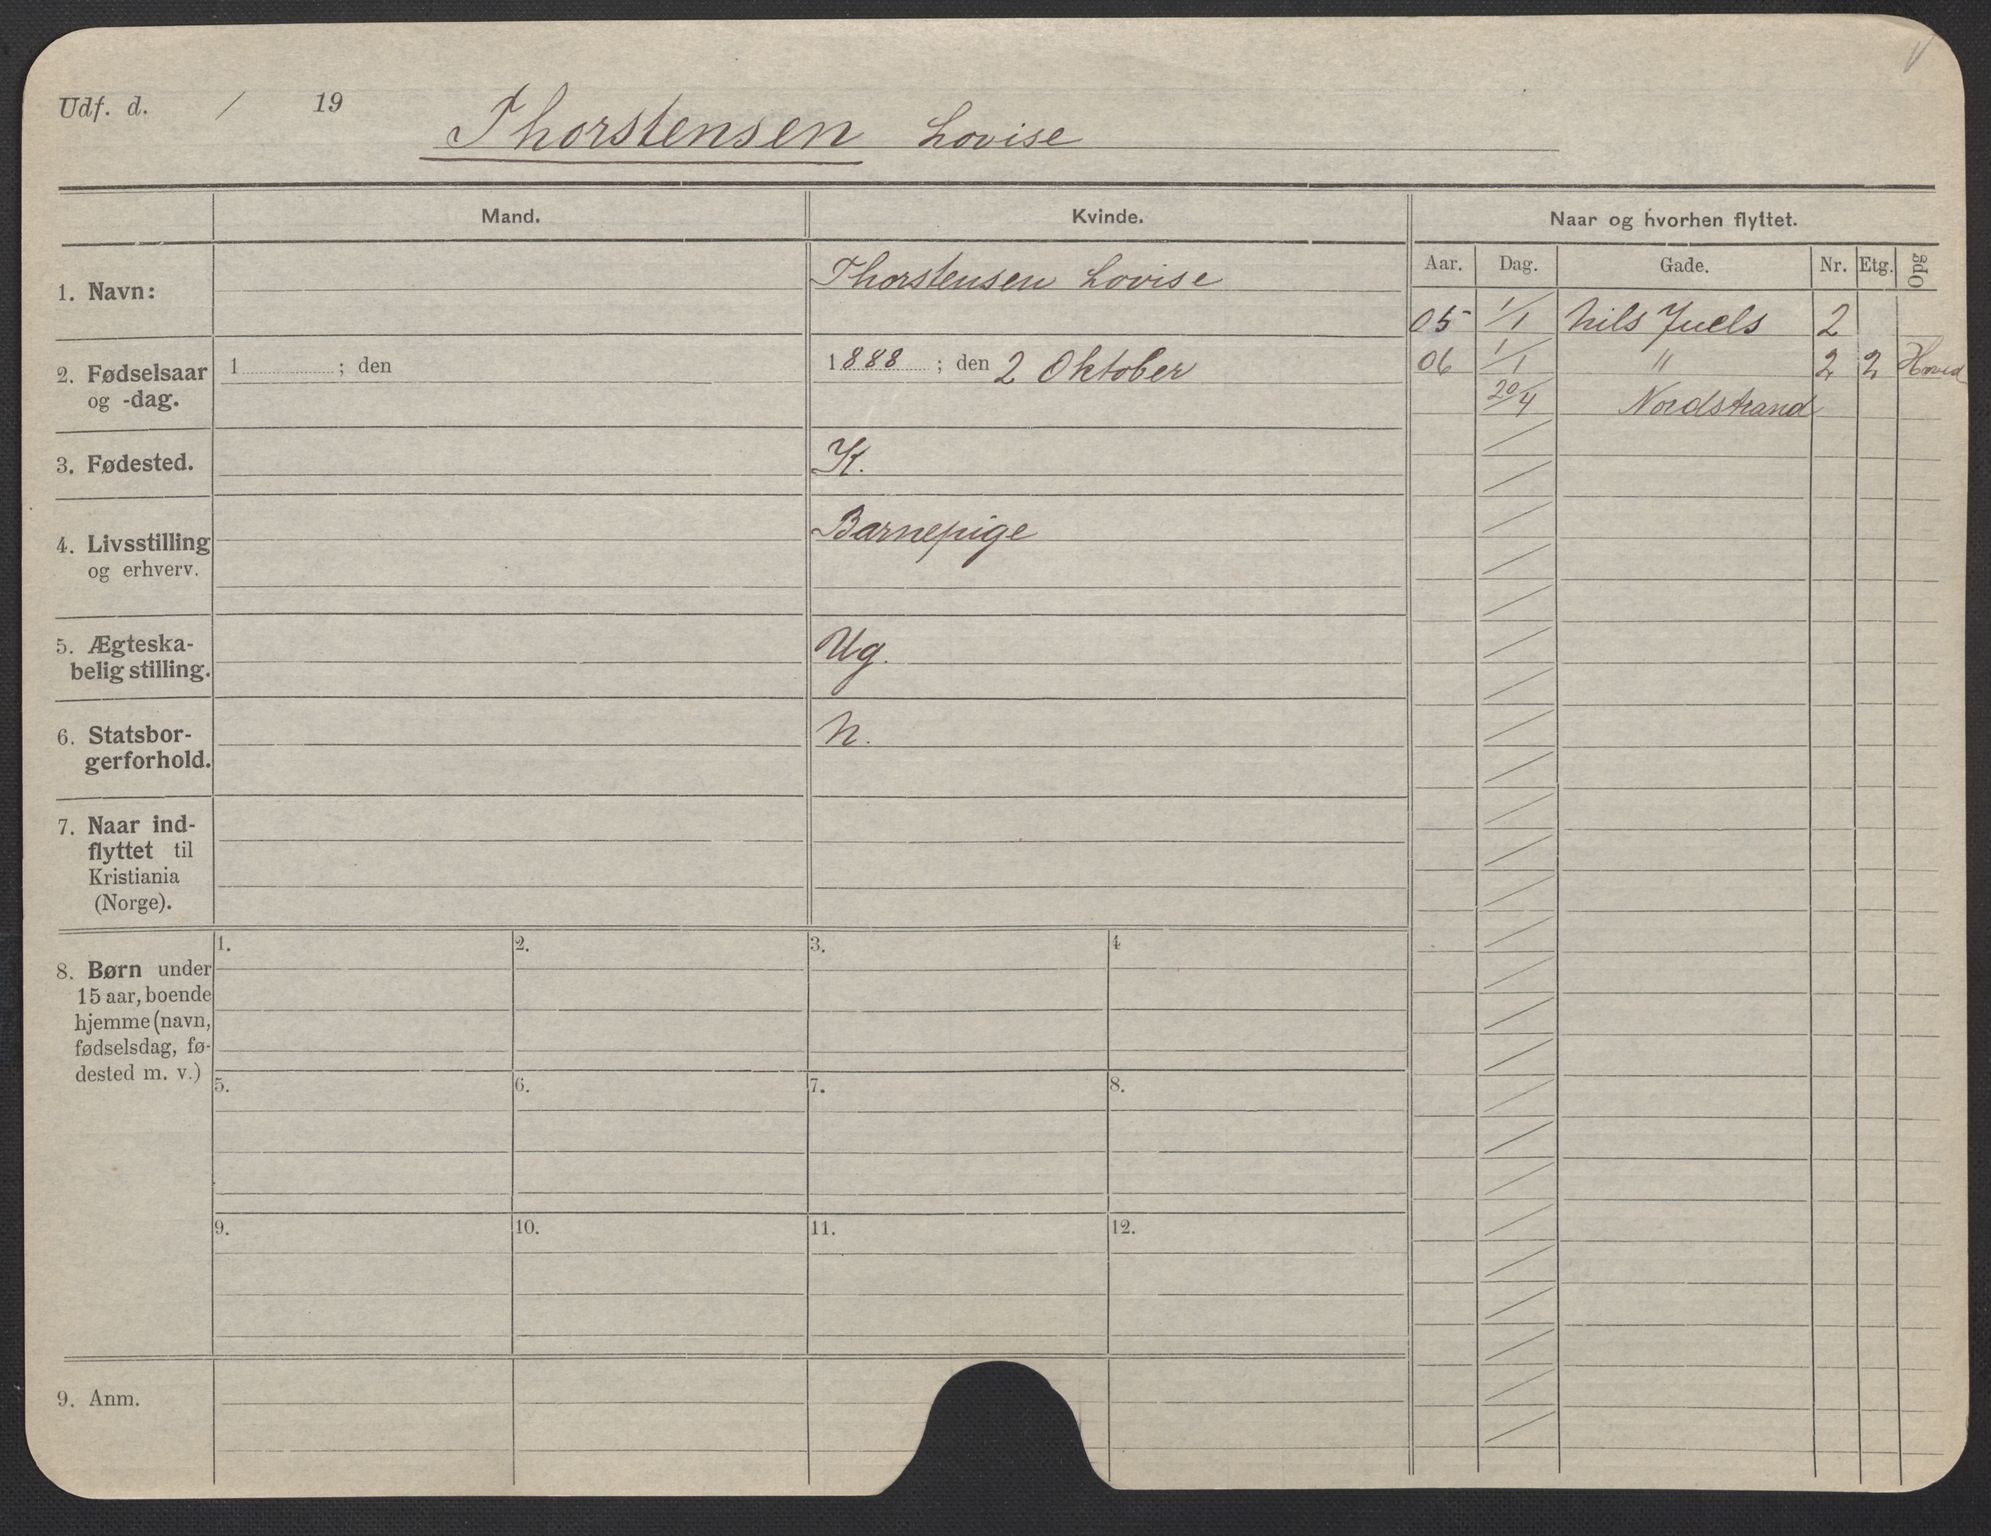 Udf. d. / 19
Thorstensen Lovise
Mand. Kvinde. Naar og hvorhen flyttet.
Aar. Dag. Gade. Nr. Etg. Opg
1. Navn: Thorstensen Lovise
05 1/1 Nils Juels 2
2. Fødselsaar og -dag. 1 ; den 1888 ; den 2 Oktober
06 1/1 " 2 2 Hoved
20/4 Nordstrand
3. Fødested. K.
4. Livsstilling Barnepige
og erhverv.
5. Ægteska- Ug.
belig stilling.
6. Statsbor- N.
gerforhold.
7. Naar ind-
flyttet til
Kristiania
(Norge).
8. Børn under
15 aar, boende
hjemme (navn,
fødselsdag, fø-
dested m. v.)
1. 2. 3. 4
5. 6. 7. 8.
9. 10. 11. 12.
9. Anm.